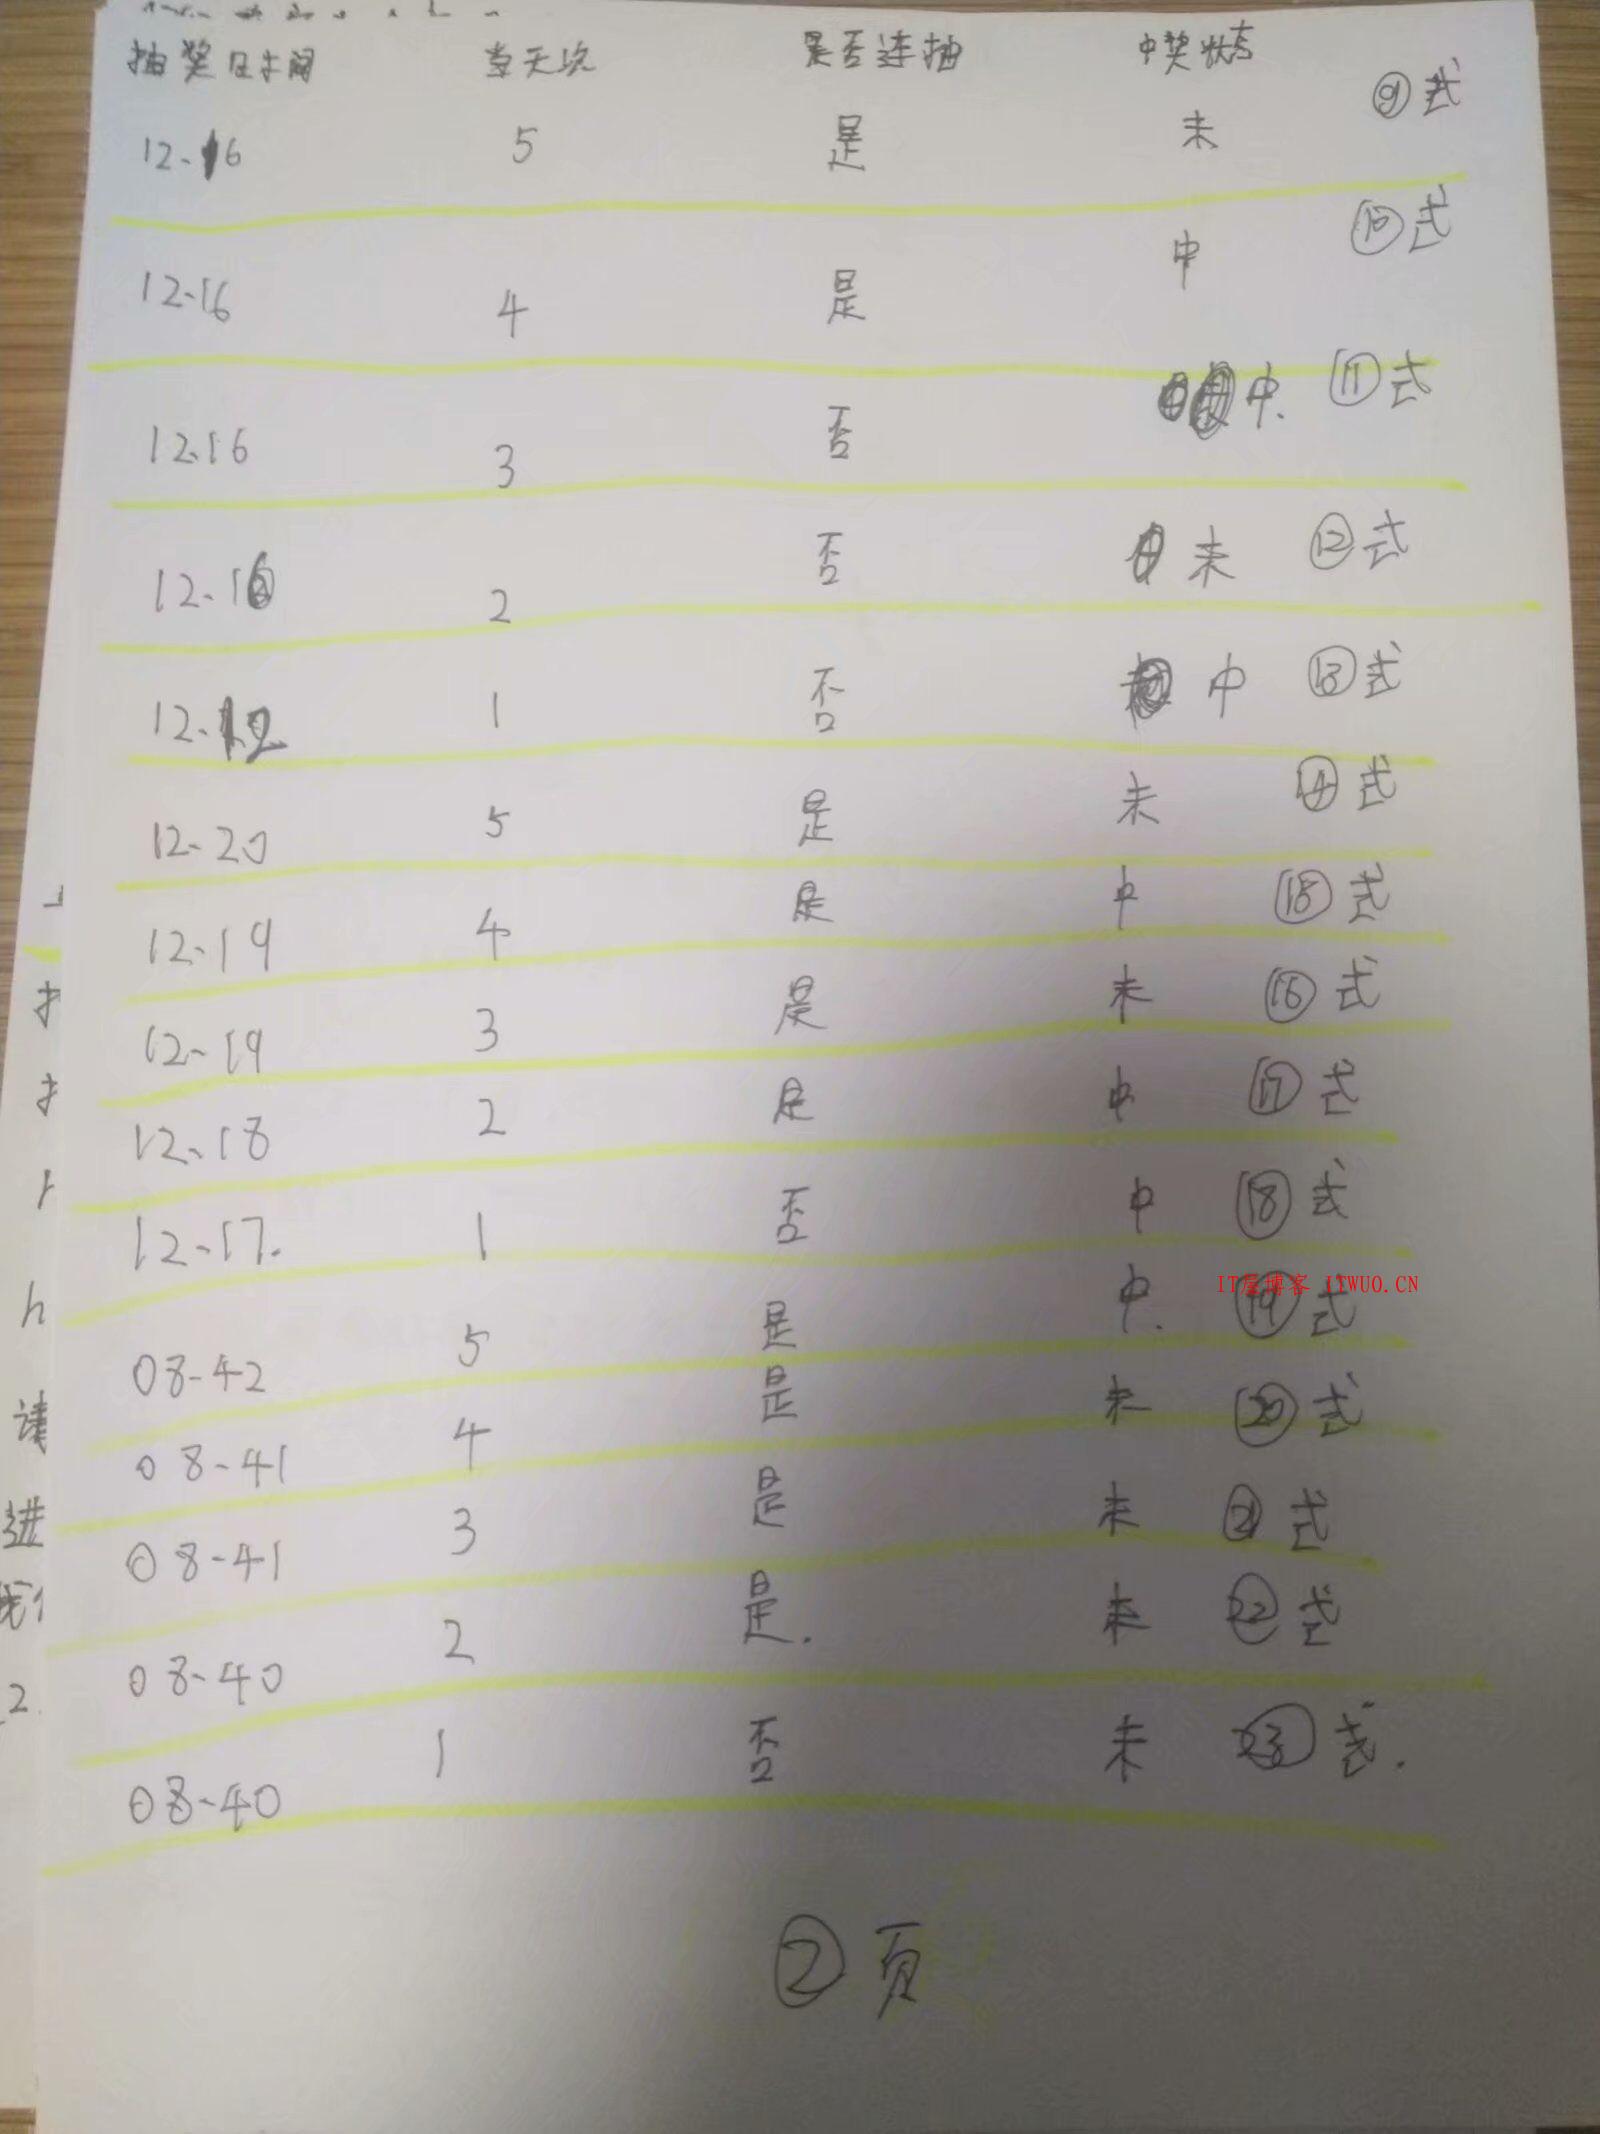 抽奖时间 当天次 是否连抽 中奖状态
12-16 5 是 未 ⑨式
12-16 4 是 中 ⑩式
12.16 3 否 中. ⑪式
12.16 2 否 未 ⑫式
12.12 1 否 中 ⑬式
12-20 5 是 未 ⑭式
12-19 4 是 中 ⑮式
12-19 3 是 未 ⑯式
12-18 2 是 中 ⑰式
12-17. 1 否 中 ⑱式
IT屋博客 ITWUO.CN
08-42 5 是 中. ⑲式
08-41 4 是 未 ⑳式
08-41 3 是 未 ㉑式
08-40 2 是. 未 ㉒式
08-40 1 否 未 ㉓式.
②页
请
进
2